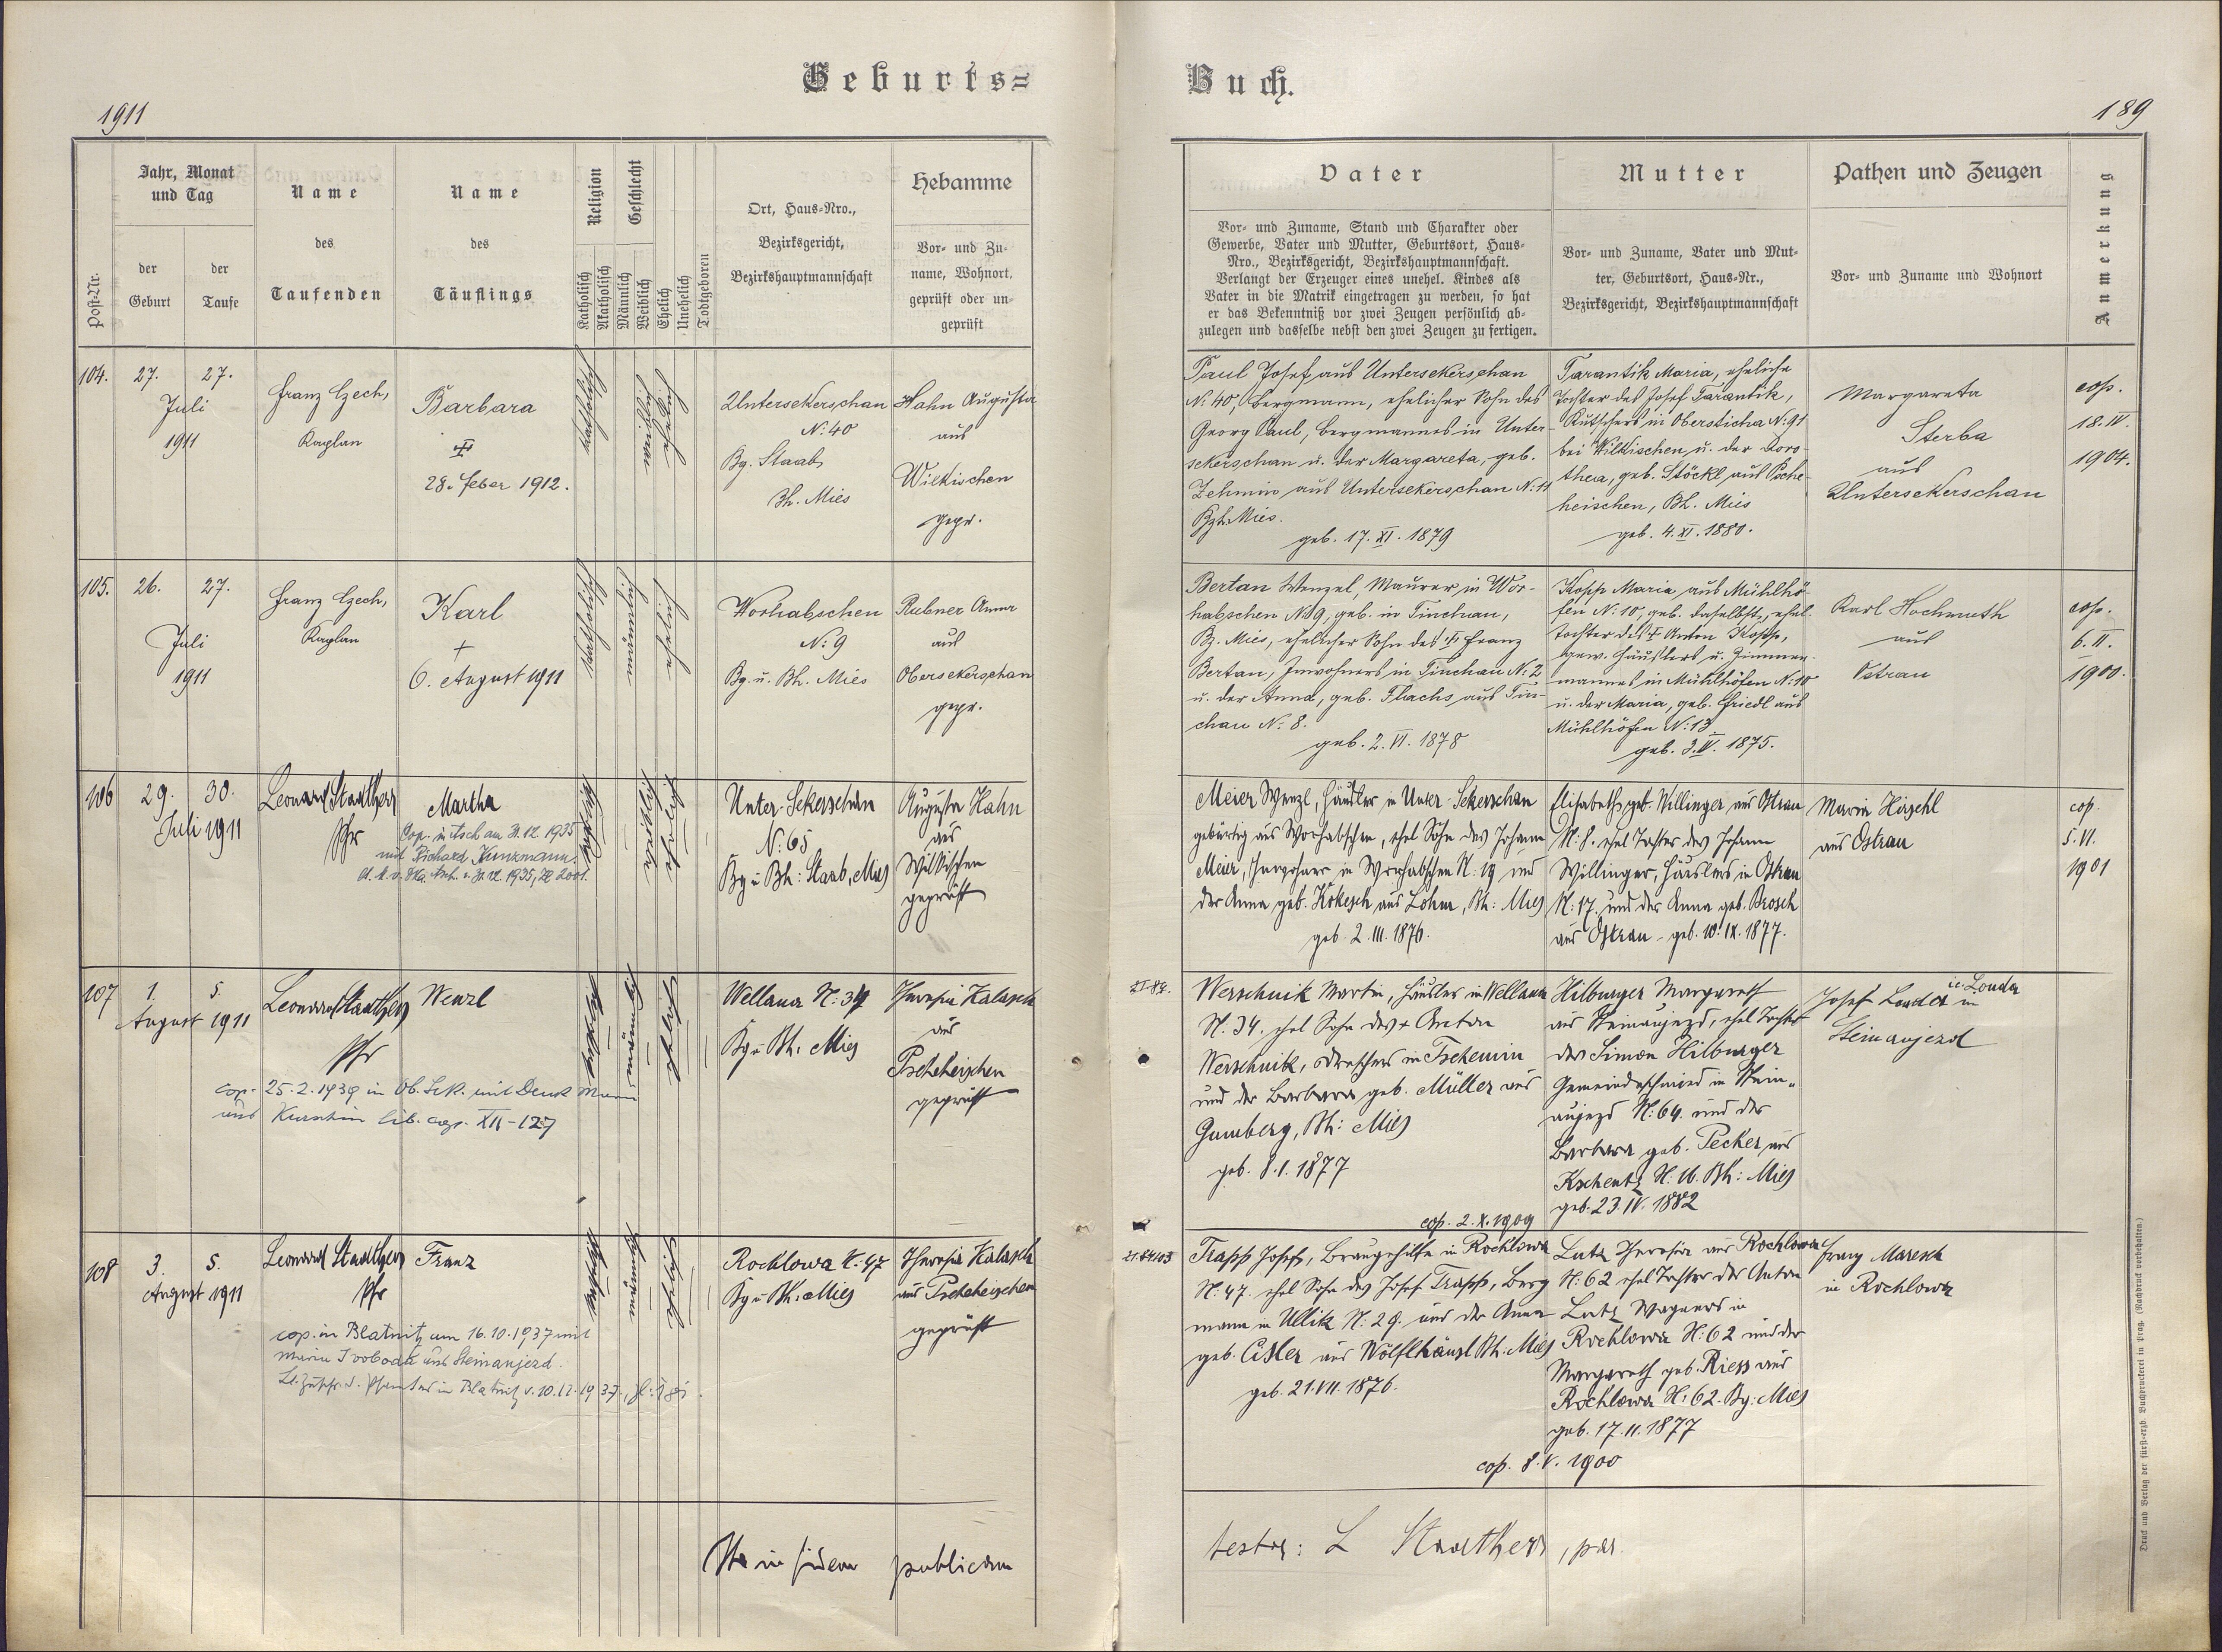 Geburts=
Buch.
1911
189
Post-Nr.
Jahr, Monat
und Tag
der
Geburt
der
Taufe
Name
des
Taufenden
Name
des
Täuflings
Religion
Katholisch
Akatholisch
Geschlecht
Männlich
Weiblich
Ehelich
Unehelich
Todtgeboren
Ort, Haus=Nro.,
Bezirksgericht,
Bezirkshauptmannschaft
Hebamme
Vor= und Zu=
name, Wohnort,
geprüft oder un=
geprüft
Vater
Vor= und Zuname, Stand und Charakter oder
Gewerbe, Vater und Mutter, Geburtsort, Haus=
Nro., Bezirksgericht, Bezirkshauptmannschaft.
Verlangt der Erzeuger eines unehel. Kindes als
Vater in die Matrik eingetragen zu werden, so hat
er das Bekenntniß vor zwei Zeugen persönlich ab=
zulegen und dasselbe nebst den zwei Zeugen zu fertigen.
Mutter
Vor= und Zuname, Vater und Mut=
ter, Geburtsort, Haus=Nr.,
Bezirksgericht, Bezirkshauptmannschaft
Pathen und Zeugen
Vor= und Zuname und Wohnort
Anmerkung
104.
27.
27.
Juli
1911
Franz Czech,
Kaplan
Barbara
28. Feber 1912.
katholisch
weiblich
ehelich
Untersekerschan
N: 40
Bg. Staab
Bh. Mies
Hahn Augusta
aus
Wilkischen
gepr.
Paul Josef aus Untersekerschan
N: 40, Bergmann, ehelicher Sohn des
Georg Paul, Bergmannes in Unter-
sekerschan u. der Margareta, geb.
Zehmin aus Untersekerschan N: 11
Bzh. Mies.
geb. 17. XI. 1879
Tarantik Maria, eheliche
Tochter des Josef Tarantik,
Kutschers in Obersticha N: 91
bei Wilkischen, u. der Doro-
thea, geb. Stöckl aus Psche-
heischen, Bh. Mies
geb. 4. XI. 1880.
Margareta
Sterba
aus
Untersekerschan
cop.
18. IV.
1904.
105.
26.
27.
Juli
1911
Franz Czech,
Kaplan
Karl
+
6. August 1911
katholisch
männlich
ehelich
Worhabschen
N: 9
Bg. u. Bh. Mies
Rubner Anna
aus
Obersekerschan
gepr.
Bertan Wenzel, Maurer in Wor-
habschen N: 9, geb. in Tinchau,
Bz. Mies, ehelicher Sohn des Franz
Bertan, Inwohners in Tinchau N: 2
u. der Anna, geb. Flachs aus Tin-
chau N: 8.
geb. 2. VI. 1878
Kopp Maria aus Mühlhö-
fen N: 10, geb. daselbst, ehel.
Tochter des Anton Kopp,
gew. Häuslers u. Zimmer-
mannes in Mühlhöfen N: 10
u. der Maria, geb. Friedl aus
Mühlhöfen N: 13
geb. 3. IV. 1875.
Karl Hochmuth
aus
Ostrau
cop.
6. II.
1900.
106
29.
30.
Juli 1911
Leonard Staathers
Pfr
Martha
Cop. in Asch am 31.12. 1935
mit Richard Kunzmann.
katholisch
weiblich
ehelich
Unter-Sekerschan
N: 65
Bg u Bh: Staab, Mies
Augusta Hahn
aus
Wilkischen
geprüft
Meier Wenzl, Häusler in Unter-Sekerschan
gebürtig aus Worhabschen, ehel Sohn des Johann
Meier, Inwohner in Worhabschen N: 19 und
der Anna geb. Kokesch aus Lohm, Bh: Mies
geb. 2. III. 1876.
Elisabeth geb. Willinger aus Ostrau
N: 8. ehel Tochter des Johann
Willinger, Häuslers in Ostrau
N: 17. und der Anna geb. Brosch
aus Ostrau - geb. 10. IX. 1877.
Maria Hirschl
aus Ostrau
cop.
5. VI.
1901
107
1.
5.
August 1911
Leonard Staathers
Pfr
Wenzl
cop. 25.2.1939 in Ob. Sek. mit
aus Kurschin lib. cop. XII-127
katholisch
männlich
ehelich
Wellana N: 34
Bg u Bh: Mies
Theresia Kalasch
aus
Pscheheischen
geprüft
Werschnik Martin, Häusler in Wellana
N. 34. ehel Sohn des + Anton
Werschnik, Dreschers in Tschemin
und der Barbara geb. Müller aus
Gumberg, Bh: Mies
geb. 8. 1. 1877
cop. 2. X. 1909
Hilburger Margareth
aus Steinaujezd, ehel Tochter
des Simon Hilburger
Gemeindeschmied in Stein-
aujezd N: 64. und der
Barbara geb. Pecker aus
Kschentz N: 16. Bh: Mies
geb. 23. IV. 1882
ic: Louda
Josef Louda in
Steinaujezd
108
3.
5.
August 1911
Leonard Staathers
Pfr
Franz
cop. in Blatnitz am 16.10.1937 mit
Maria Svoboda aus Steinaujezd.
katholisch
männlich
ehelich
Rochlowa N: 47
Bg u Bh: Mies
Theresia Kalasch
aus Pscheheischen
geprüft
Trapp Josef, Braugehilfe in Rochlowa
N: 47. ehel Sohn des Josef Trapp, Berg
mann in Ullitz N: 29. und der Anna
geb. Cisler aus Wölflhäusl Bh: Mies
geb. 21. VII. 1876.
cop. 8. V. 1900
Lutz Theresia aus Rochlowa
N: 62 ehel Tochter des Anton
Lutz Wagners in
Rochlowa N: 62 und der
Margareth geb. Riess aus
Rochlowa N: 62. Bg: Mies
geb. 17. 11. 1877
Franz Maresch
in Rochlowa
in fidem publicam
testor: L Staathers, par.
Druck und Verlag der fürst=erzb. Buchdruckerei in Prag. (Nachdruck vorbehalten.)